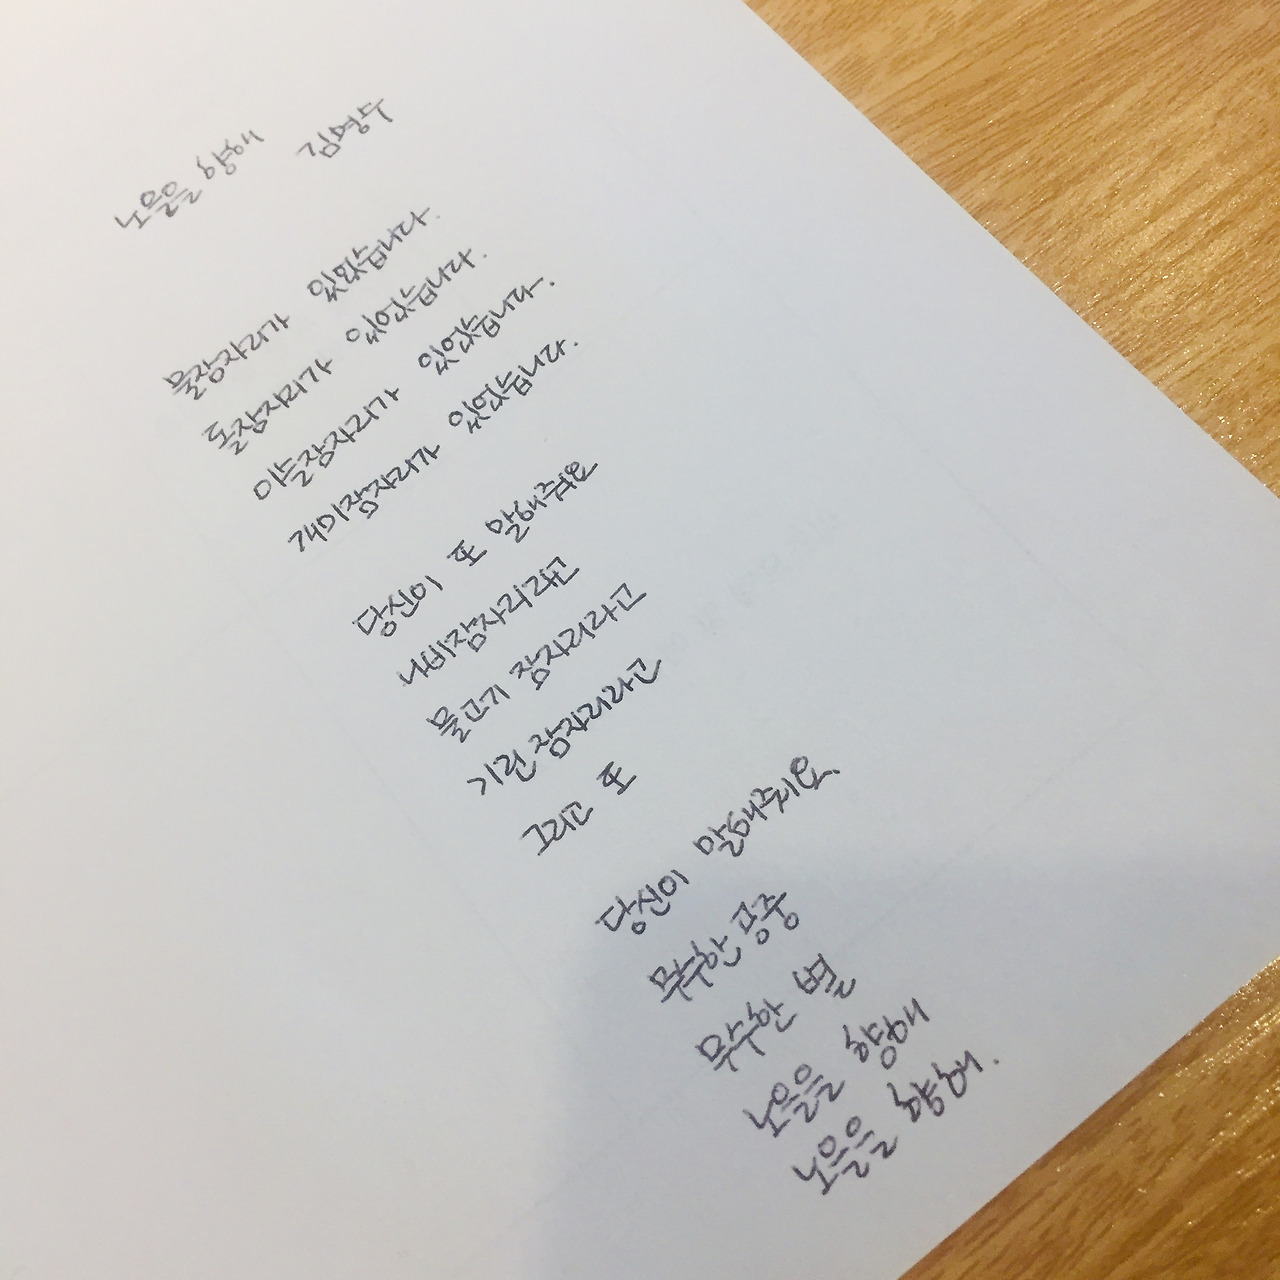 노을을 향해 김명수
물잠자리가 있었습니다.
돌잠자리가 있었습니다.
이슬잠자리가 있었습니다.
개미잠자리가 있었습니다.
당신이 또 말해줘요
나비잠자리라고
물고기 잠자리라고
기린 잠자리라고
그리고 또
당신이 말해주지요.
무수한 공중
무수한 별
노을을 향해
노을을 향해.